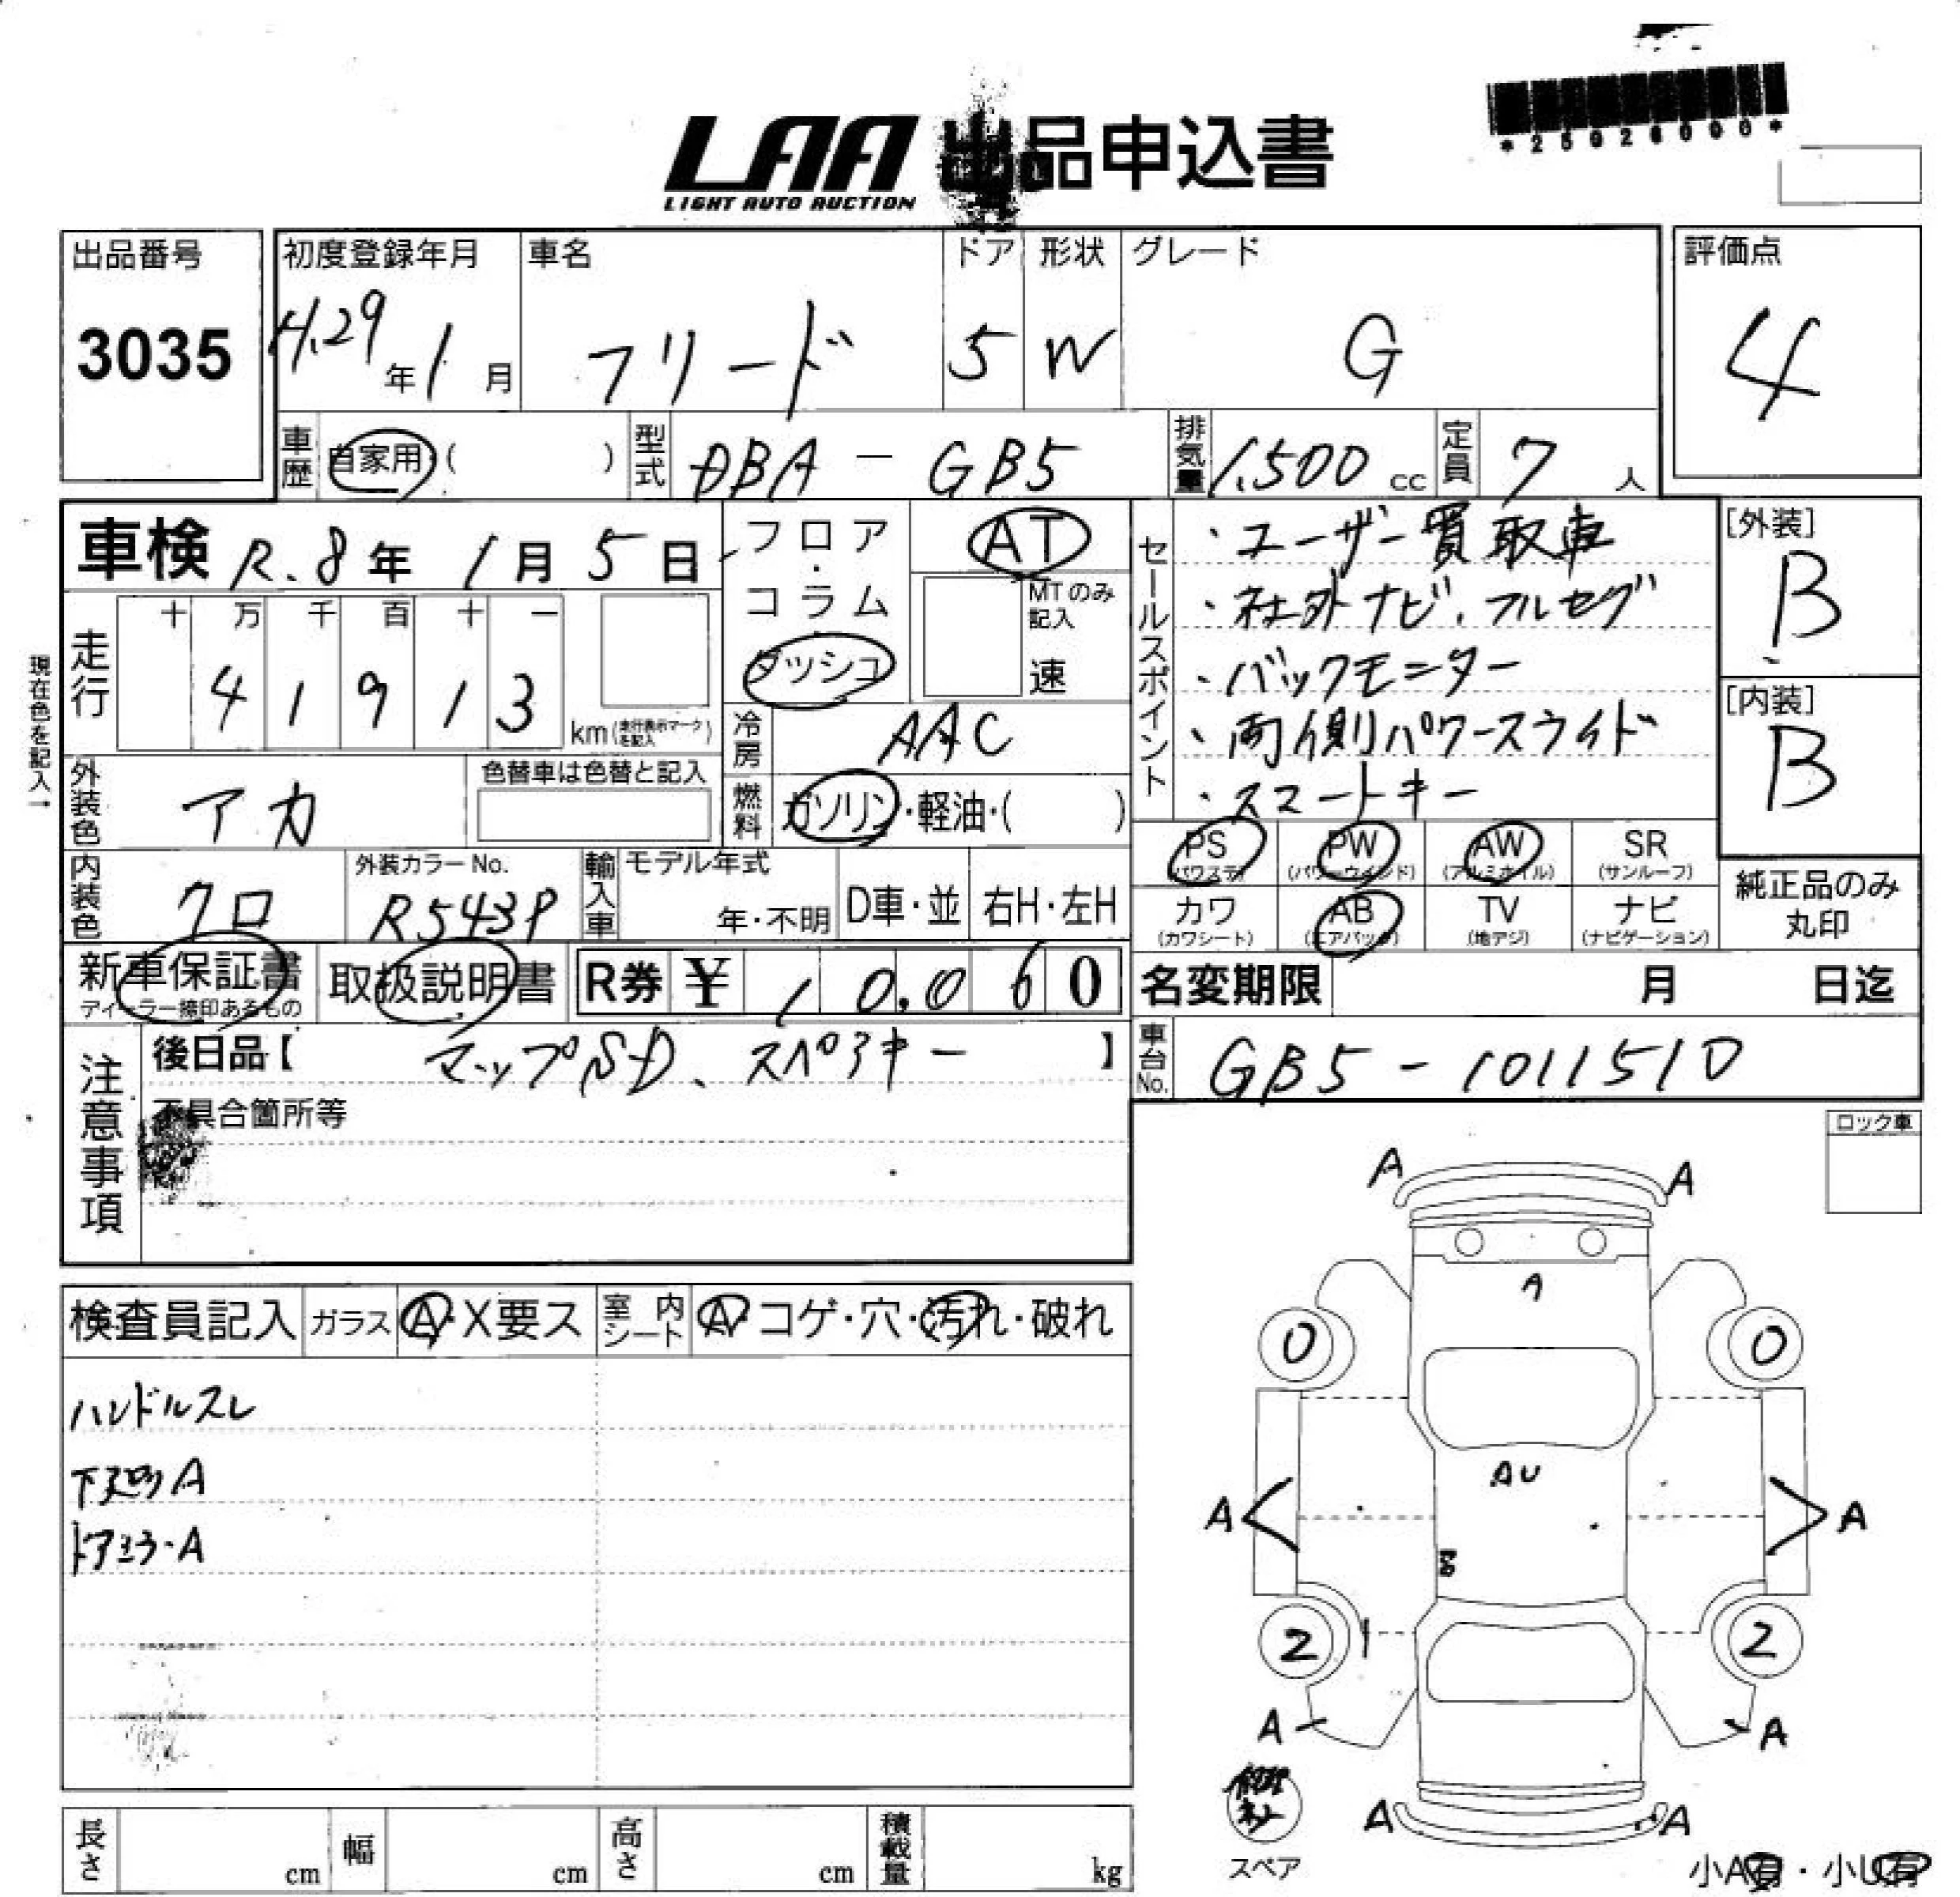 *25026000*
LAA 出品申込書
LIGHT AUTO AUCTION
出品番号
3035
初度登録年月
H.29年1月
車名
フリード
ドア
5
形状
W
グレード
G
評価点
4
車歴 自家用・( )
型式 DBA-GB5
排気量 1,500cc
定員 7人
車検 R.8年1月5日
フロア・コラム・ダッシュ
AT
MTのみ記入
速
走行
十 万 千 百 十 一
4 1 9 1 3
km(走行表示マークを記入)
現在色を記入→
冷房 AAC
外装色 アカ
色替車は色替と記入
燃料 ガソリン・軽油・( )
内装色 クロ
外装カラーNo.
R543P
輸入車 モデル年式
年・不明
D車・並
右H・左H
セールスポイント
・ユーザー買取車
・社外ナビ、フルセグ
・バックモニター
・両側パワースライド
・スマートキー
[外装]
B
[内装]
B
PS (パワステ)
PW (パワーウインド)
AW (アルミホイル)
SR (サンルーフ)
カワ (カワシート)
AB (エアバック)
TV (地デジ)
ナビ (ナビゲーション)
純正品のみ丸印
新車保証書
ディーラー捺印あるもの
取扱説明書
R券 ¥ 10,060
名変期限 月 日迄
注意事項
後日品【マップSD、スペアキー】
不具合箇所等
車台No. GB5-1011510
ロック車
検査員記入
ガラス A・X要ス
室内シート A・コゲ・穴・汚れ・破れ
ハンドルスレ
下廻りA
ドアミラーA
A A
A
0 0
AU
A A
2 2
A A
A A
スペア
小A有・小U有
長さ cm
幅 cm
高さ cm
積載量 kg